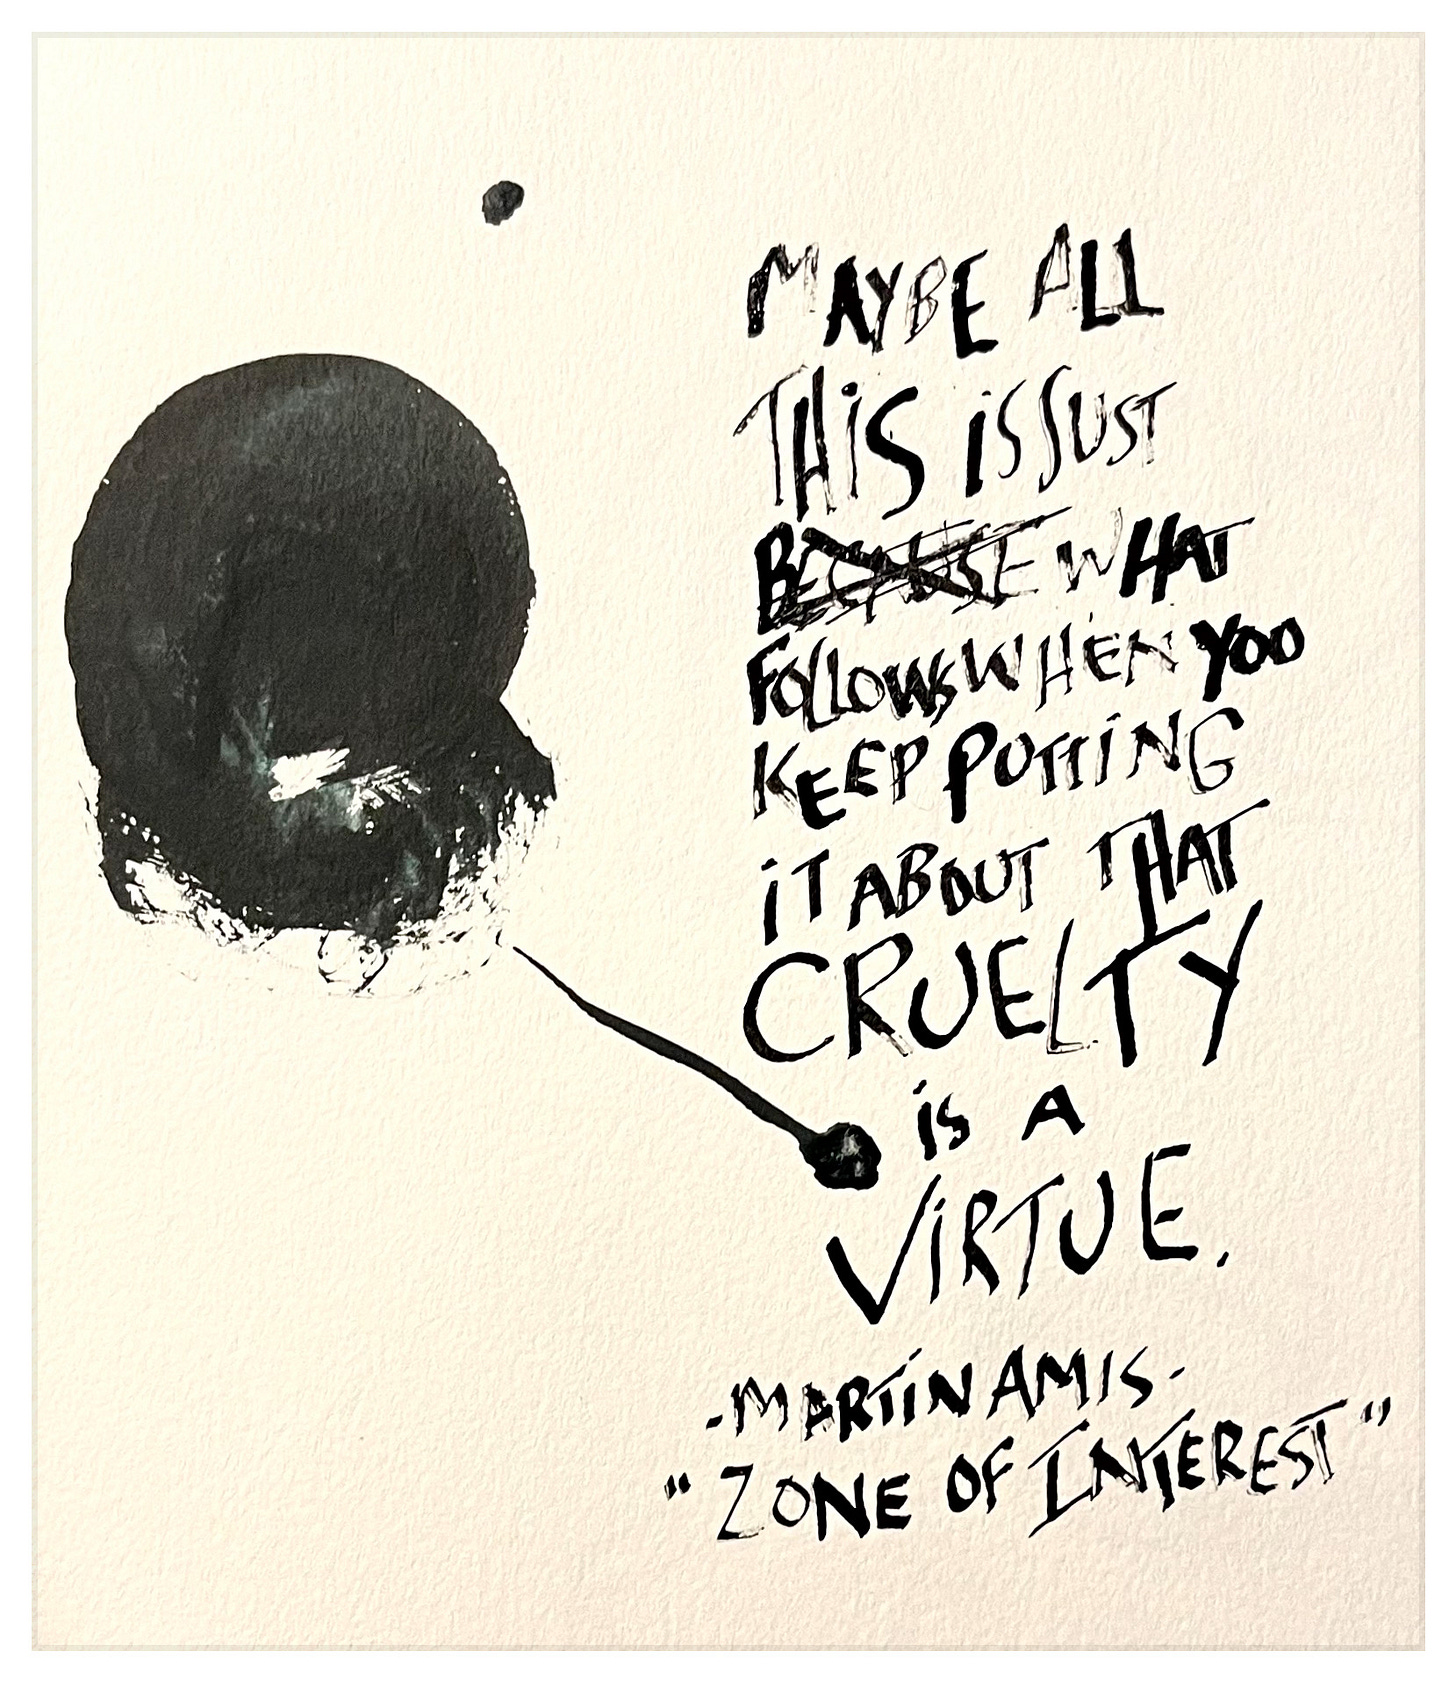 MAYBE ALL
THiS iS JUST
BECAUSE WHAT
FOLLOWS WHEN YOU
KEEP PUTTiNG
iT ABOUT THAT
CRUELTY
iS A
ViRTUE.
-MARTiN AMIS-
"ZONE OF INTEREST"